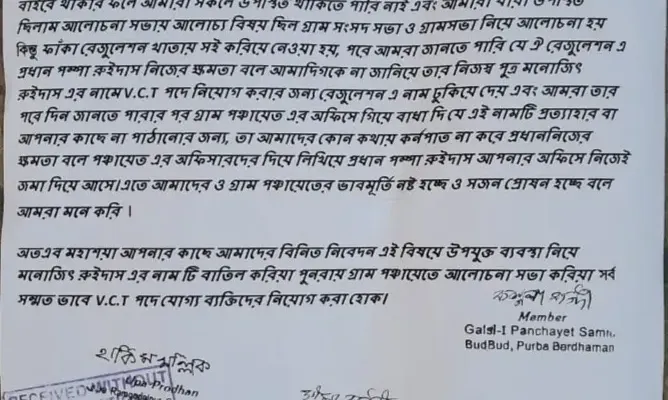 বাইরে থাকার ফলে আমরা সকলে উপস্থিত থাকিতে পারি নাই এবং আমরা যারা উপস্থিত
ছিলাম আলোচনা সভায় আলোচ্য বিষয় ছিল গ্রাম সংসদ সভা ও গ্রামসভা নিয়ে আলোচনা হয়
কিন্তু ফাঁকা রেজুলেশন খাতায় সই করিয়ে নেওয়া হয়, পরে আমরা জানতে পারি যে ঐ রেজুলেশন এ
প্রধান পম্পা রুইদাস নিজের ক্ষমতা বলে আমাদিগকে না জানিয়ে তার নিজস্ব পুত্র মনোজিৎ
রুইদাস এর নামে V.C.T পদে নিয়োগ করার জন্য রেজুলেশন এ নাম ঢুকিয়ে দেয় এবং আমরা তার
পরে দিন জানতে পারার পর গ্রাম পঞ্চায়েত এর অফিসে গিয়ে বাধা দি যে এই নামটি প্রত্যাহার বা
আপনার কাছে না পাঠানোর জন্য, তা আমাদের কোন কথায় কর্নপাত না করে প্রধাননিজের
ক্ষমতা বলে পঞ্চায়েত এর অফিসারদের দিয়ে লিখিয়ে প্রধান পম্পা রুইদাস আপনার অফিসে নিজেই
জমা দিয়ে আসে।এতে আমাদের ও গ্রাম পঞ্চায়েতের ভাবমূর্তি নষ্ট হচ্ছে ও সজন প্রোষন হচ্ছে বলে
আমরা মনে করি ।
অতএব মহাশয়া আপনার কাছে আমাদের বিনিত নিবেদন এই বিষয়ে উপযুক্ত ব্যবস্থা নিয়ে
মনোজিৎ রুইদাস এর নাম টি বাতিল করিয়া পুনরায় গ্রাম পঞ্চায়েতে আলোচনা সভা করিয়া সর্ব
সম্মত ভাবে V.C.T পদে যোগ্য ব্যক্তিদের নিয়োগ করা হোক।
Member
Galsi-I Panchayet Samit
BudBud, Purba Bardhaman
হাকিম মল্লিক
Upa Prodhan
RECEIVED WITHOUT